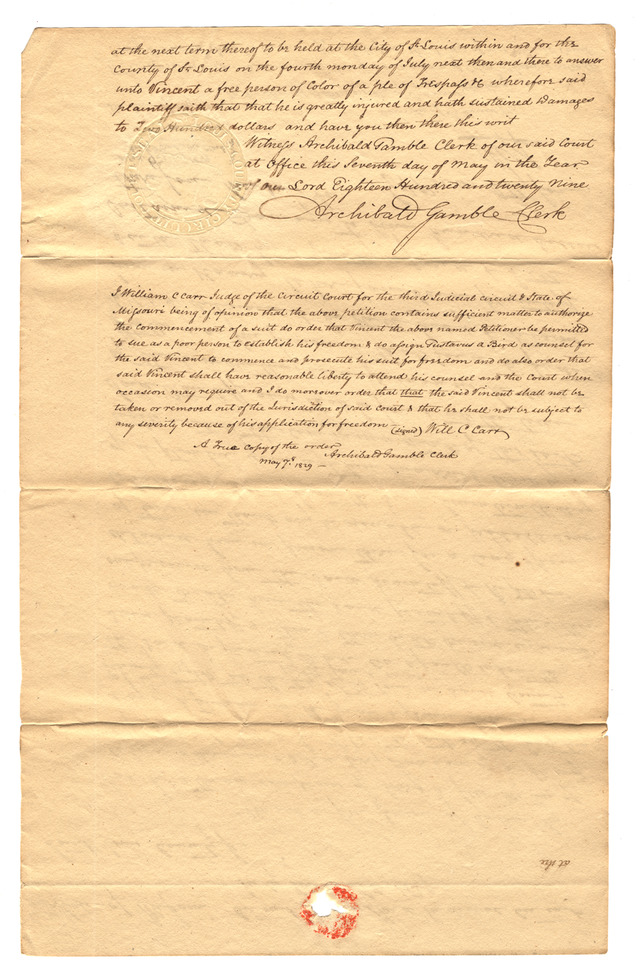 at the next term thereof to be held at the City of St Louis within and for the
County of St Louis on the fourth monday of July next then and there to answer
unto Vincent a free person of Color of a plea of Trespass &c wherefore said
plaintiff saith that that he is greatly injured and hath sustained Damages
to Two Hundred dollars and have you then there this writ
Witness Archibald Gamble Clerk of our said Court
at Office this Seventh day of May in the Year
of our Lord Eighteen Hundred and twenty Nine
Archibald Gamble Clerk
I William C Carr Judge of the Circuit Court for the third Judicial circuit & State of
Missouri being of opinion that the above petition contains sufficient matter to authorize
the commencement of a suit do order that Vincent the above named Petitioner be permitted
to sue as a poor person to establish his freedom & do assign Gustavus A Bird as counsel for
the said Vincent to commence and prosecute his suit for freedom and do also order that
said Vincent shall have reasonable liberty to attend his counsel and the Court when
occasion may require and I do moreover order that that the said Vincent shall not be
taken or removed out of the Jurisdiction of said Court & that he shall not be subject to
any severity because of his application for freedom (signed) Will C Carr
A True copy of the order
May 7th 1829 — Archibald Gamble Clerk